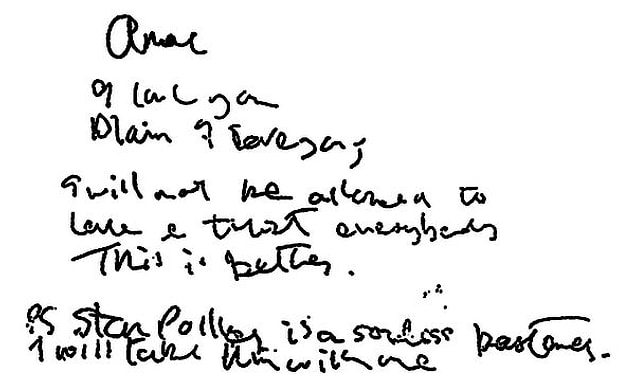 Anne
I love you
Blair I love you,
I will not be allowed to
love & trust everybody
This is better.
PS Stan Polley is a soulless bastard.
I will take him with me